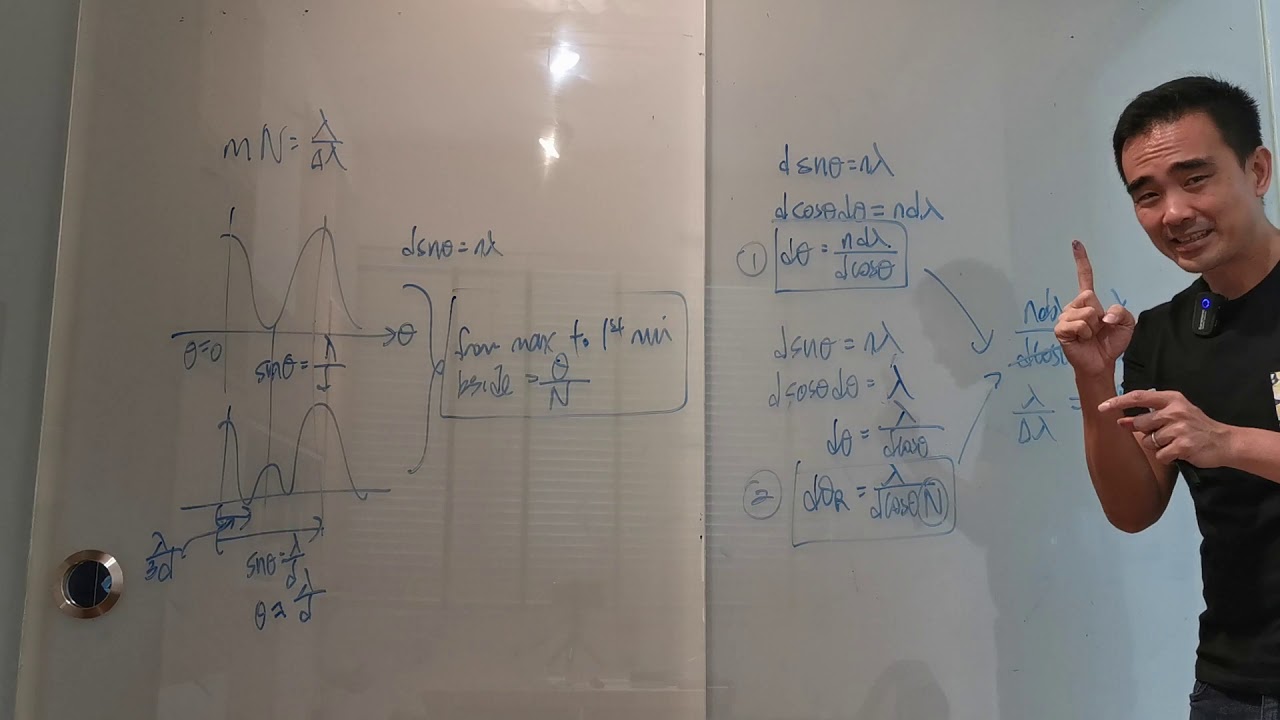 mN = λ/Δλ
θ
θ=0
sinθ = λ/d
dsnθ = nλ
from max to 1st min
bside = θ/N
λ/3d
snθ = λ/d
θ ≈ λ/d
dsnθ = nλ
dcosθdθ = ndλ
① dθ = ndλ/dcosθ
dsnθ = nλ
dcosθdθ = λ
dθ = λ/dcosθ
② dθR = λ/dcosθ(N)
ndλ
λ/Δλ =